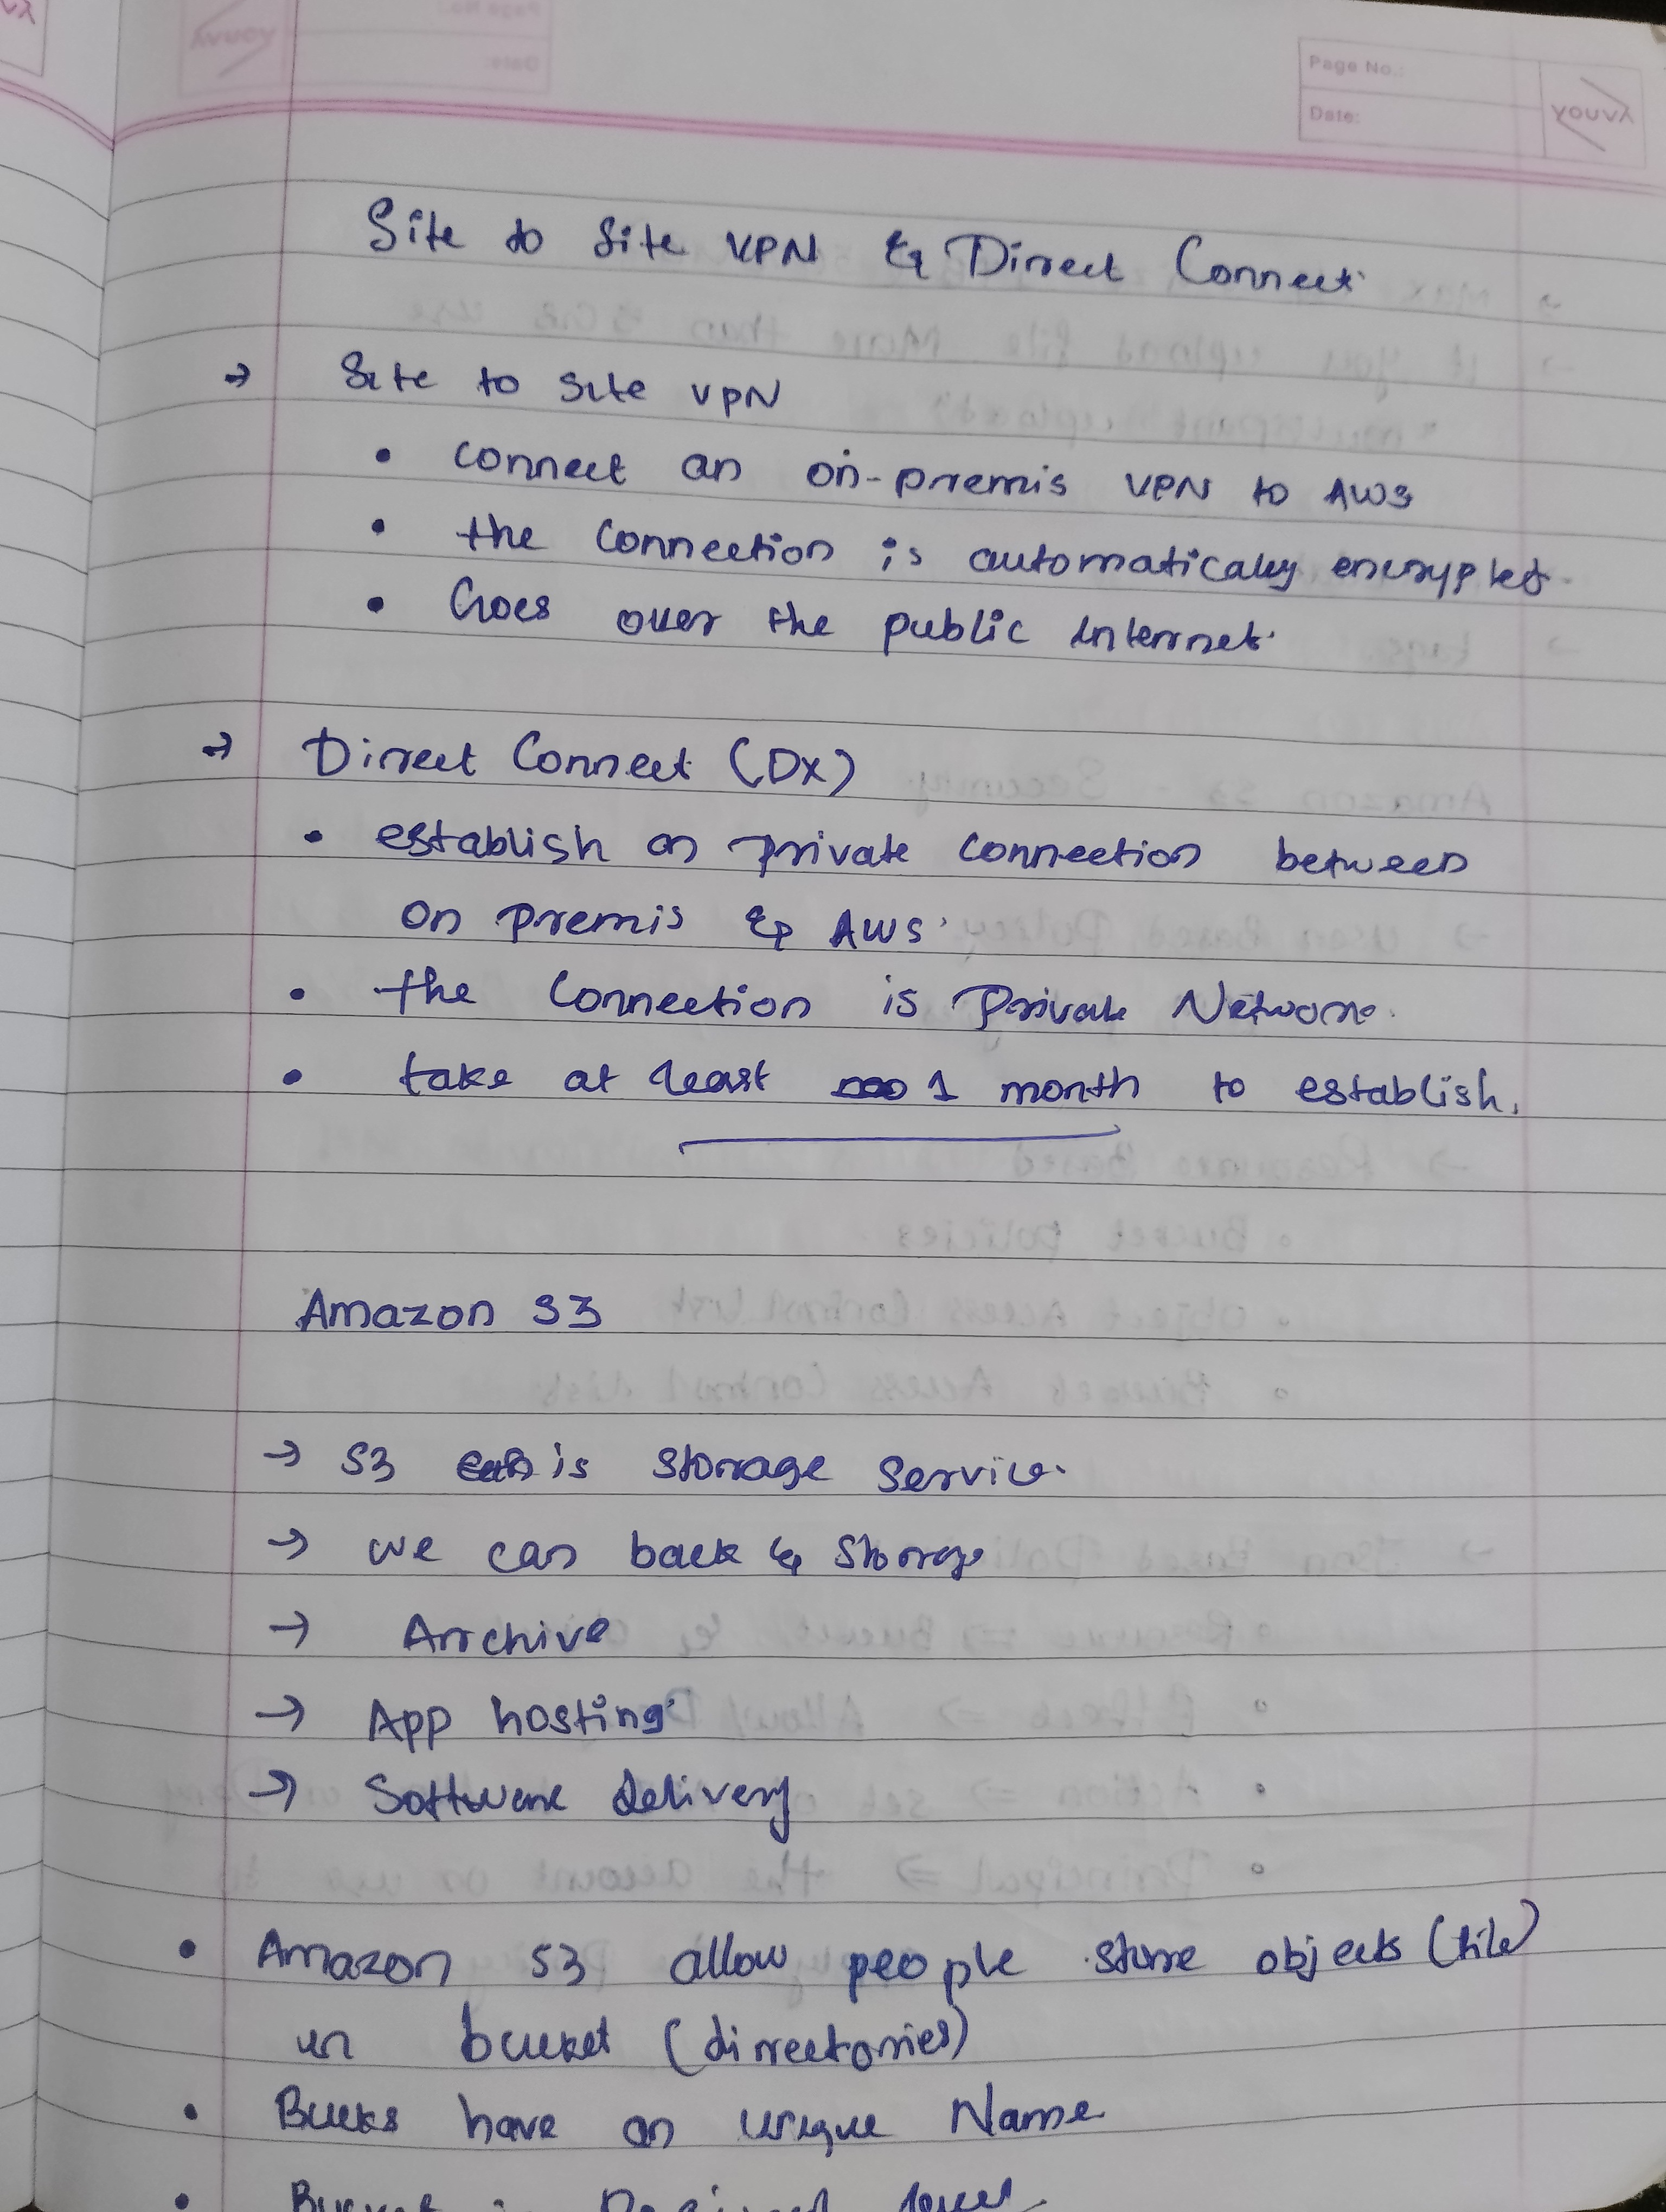 Page No.:
Date:
YOUVA
Site to Site VPN & Direct Connect
→ Site to Site VPN
• connect an on-premis VPN to AWS
• the connection is automatically encrypted.
• Goes over the public Internet.
→ Direct Connect (DX)
• establish an private connection between
on premis & AWS.
• the connection is private Network.
• take at least 1 month to establish.
Amazon S3
→ S3 is storage service.
→ we can back & storage
→ Archive
→ App hosting
→ Software delivery
• Amazon S3 allow people store objects (file)
in bucket (directories)
• Buckts have an unique Name
• Bucket level